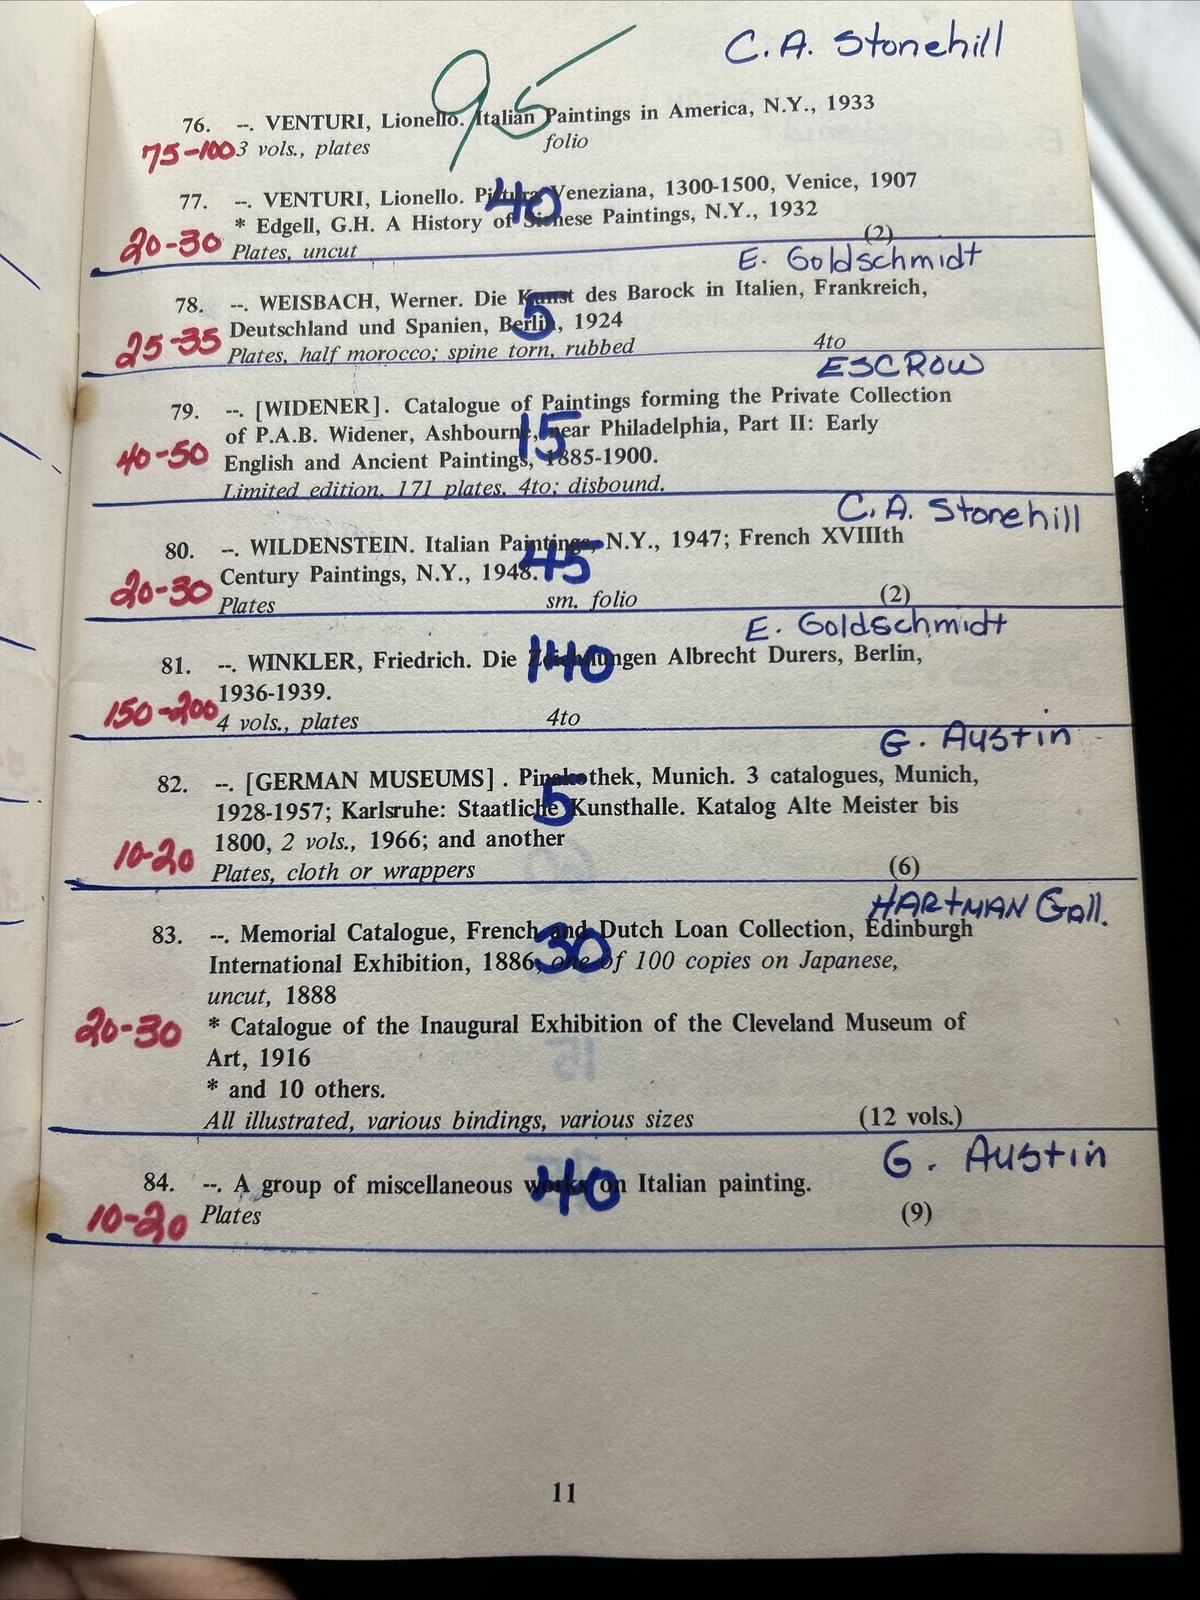 C. A. Stonehill
95
76. --. VENTURI, Lionello. Italian Paintings in America, N.Y., 1933
75-100 3 vols., plates folio
40
77. --. VENTURI, Lionello. Pittura Veneziana, 1300-1500, Venice, 1907
* Edgell, G.H. A History of Sienese Paintings, N.Y., 1932
20-30 Plates, uncut (2)
E. Goldschmidt
78. --. WEISBACH, Werner. Die Kunst des Barock in Italien, Frankreich,
5
Deutschland und Spanien, Berlin, 1924
25-35 Plates, half morocco; spine torn, rubbed 4to
ESCROW
79. --. [WIDENER]. Catalogue of Paintings forming the Private Collection
15
of P.A.B. Widener, Ashbourne, near Philadelphia, Part II: Early
40-50 English and Ancient Paintings, 1885-1900.
Limited edition, 171 plates. 4to; disbound.
C. A. Stonehill
80. --. WILDENSTEIN. Italian Paintings, N.Y., 1947; French XVIIIth
45
Century Paintings, N.Y., 1948.
20-30 Plates sm. folio (2)
E. Goldschmidt
140
81. --. WINKLER, Friedrich. Die Zeichnungen Albrecht Durers, Berlin,
1936-1939.
150-200 4 vols., plates 4to
G. Austin
82. --. [GERMAN MUSEUMS]. Pinakothek, Munich. 3 catalogues, Munich,
5
1928-1957; Karlsruhe: Staatliche Kunsthalle. Katalog Alte Meister bis
1800, 2 vols., 1966; and another
10-20 Plates, cloth or wrappers (6)
HARTMAN Gall.
83. --. Memorial Catalogue, French and Dutch Loan Collection, Edinburgh
30
International Exhibition, 1886, one of 100 copies on Japanese,
uncut, 1888
20-30 * Catalogue of the Inaugural Exhibition of the Cleveland Museum of
Art, 1916
* and 10 others.
All illustrated, various bindings, various sizes (12 vols.)
G. Austin
84. --. A group of miscellaneous works on Italian painting.
40
10-20 Plates (9)
11